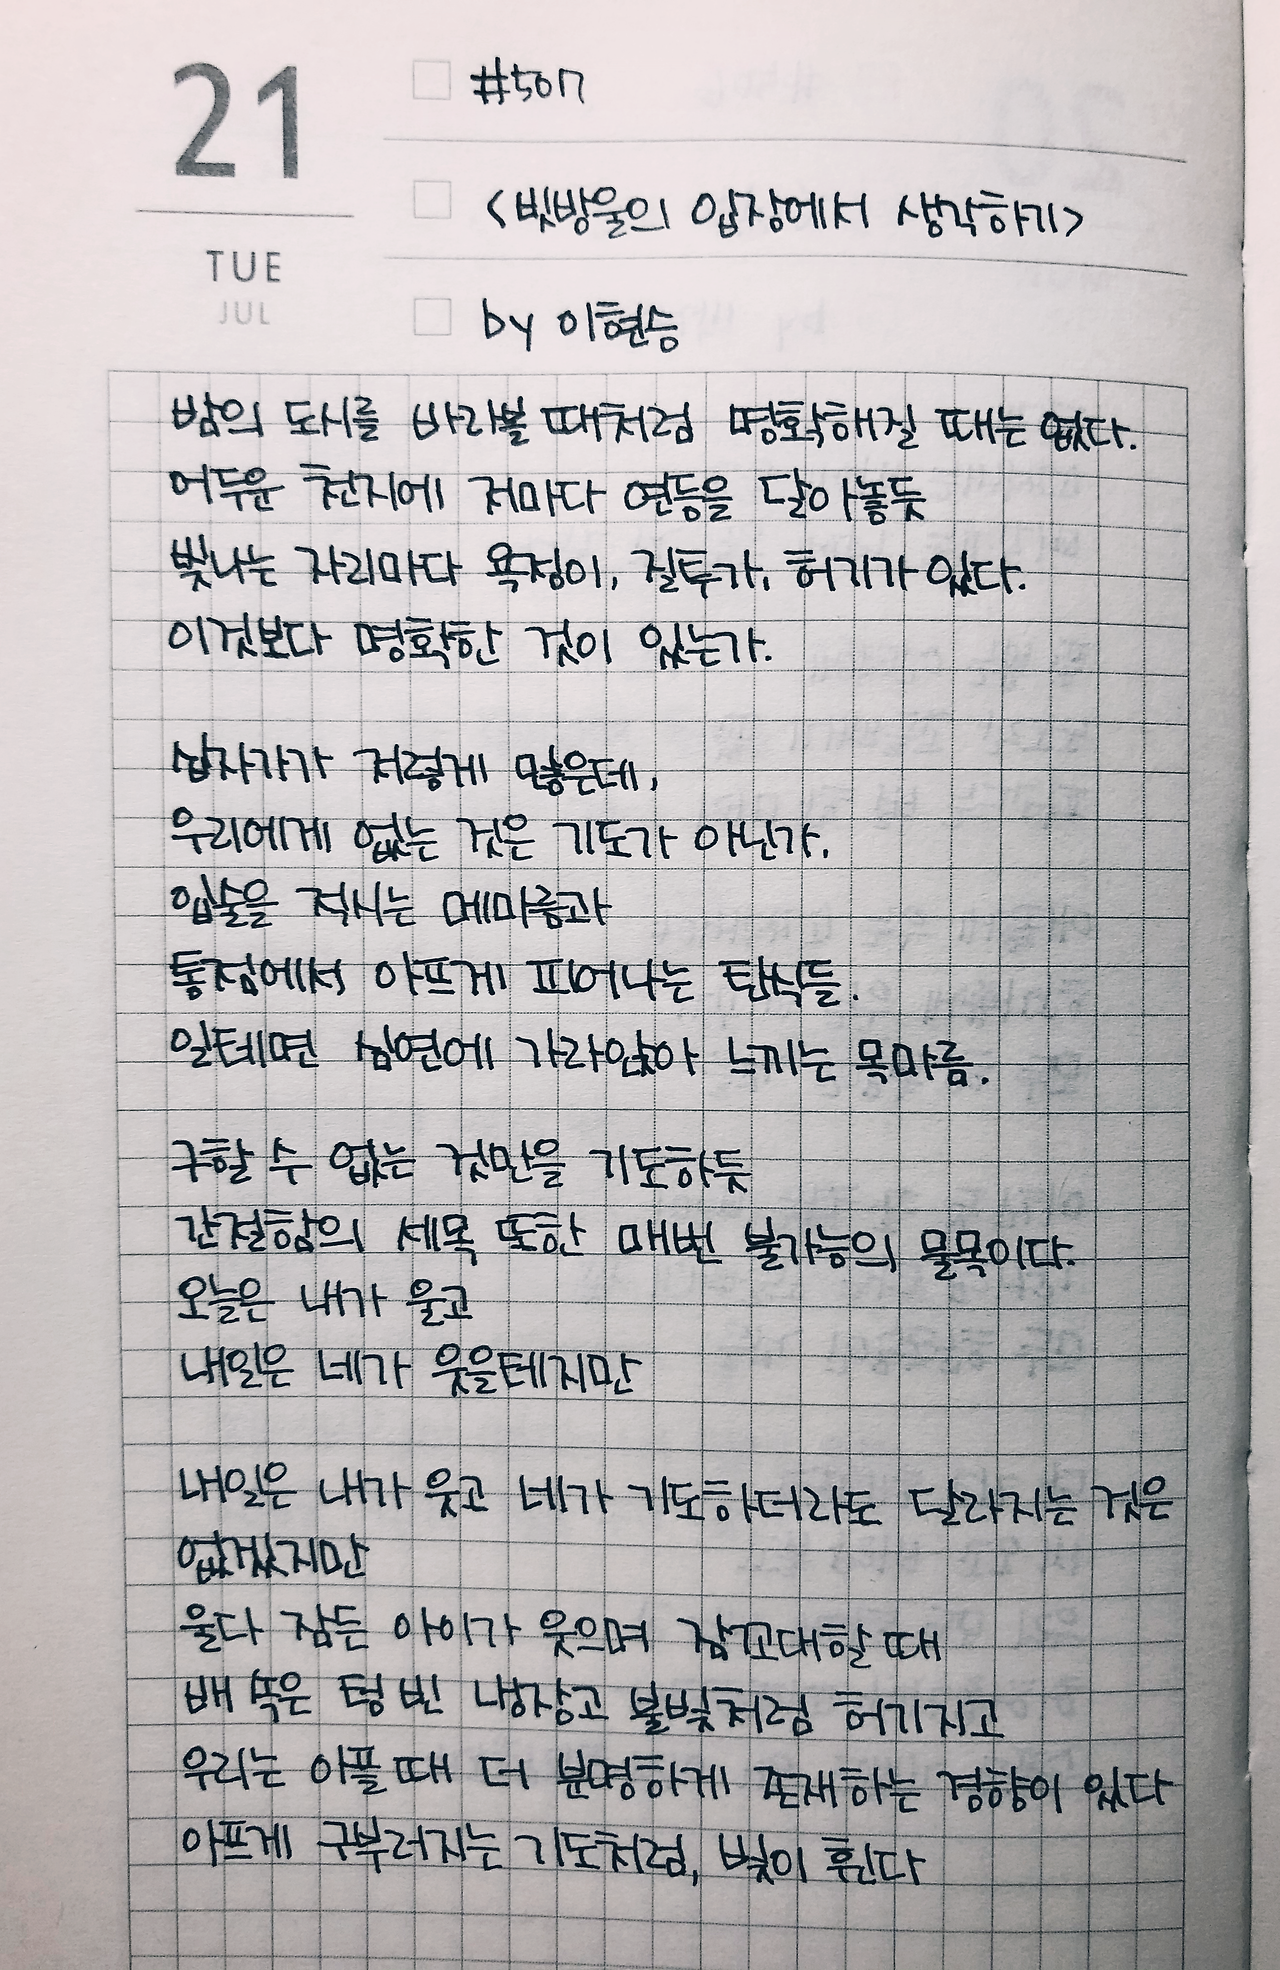 21
TUE
JUL
#507
<빗방울의 입장에서 생각하기>
by 이현승
밤의 도시를 바라볼 때처럼 명확해질 때는 없다.
어두운 천지에 저마다 연등을 달아놓듯
빛나는 자리마다 욕정이, 질투가, 허기가 있다.
이것보다 명확한 것이 있는가.
십자가가 저렇게 많은데,
우리에게 없는 것은 기도가 아닌가.
입술을 적시는 메마름과
통점에서 아프게 피어나는 탄식들.
일테면 심연에 가라앉아 느끼는 목마름.
구할 수 없는 것만을 기도하듯
간절함의 세목 또한 매번 불가능의 물목이다.
오늘은 내가 울고
내일은 네가 웃을테지만
내일은 내가 웃고 네가 기도하더라도 달라지는 것은
없겠지만
울다 잠든 아이가 웃으며 잠꼬대할 때
배 속은 텅 빈 냉장고 불빛처럼 허기지고
우리는 아플 때 더 분명하게 존재하는 경향이 있다
아프게 구부러지는 기도처럼, 빛이 휜다